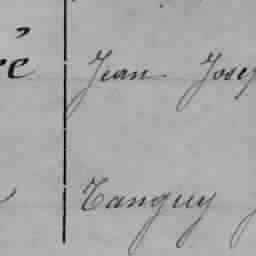 ré Jean Josep
Tanguy J